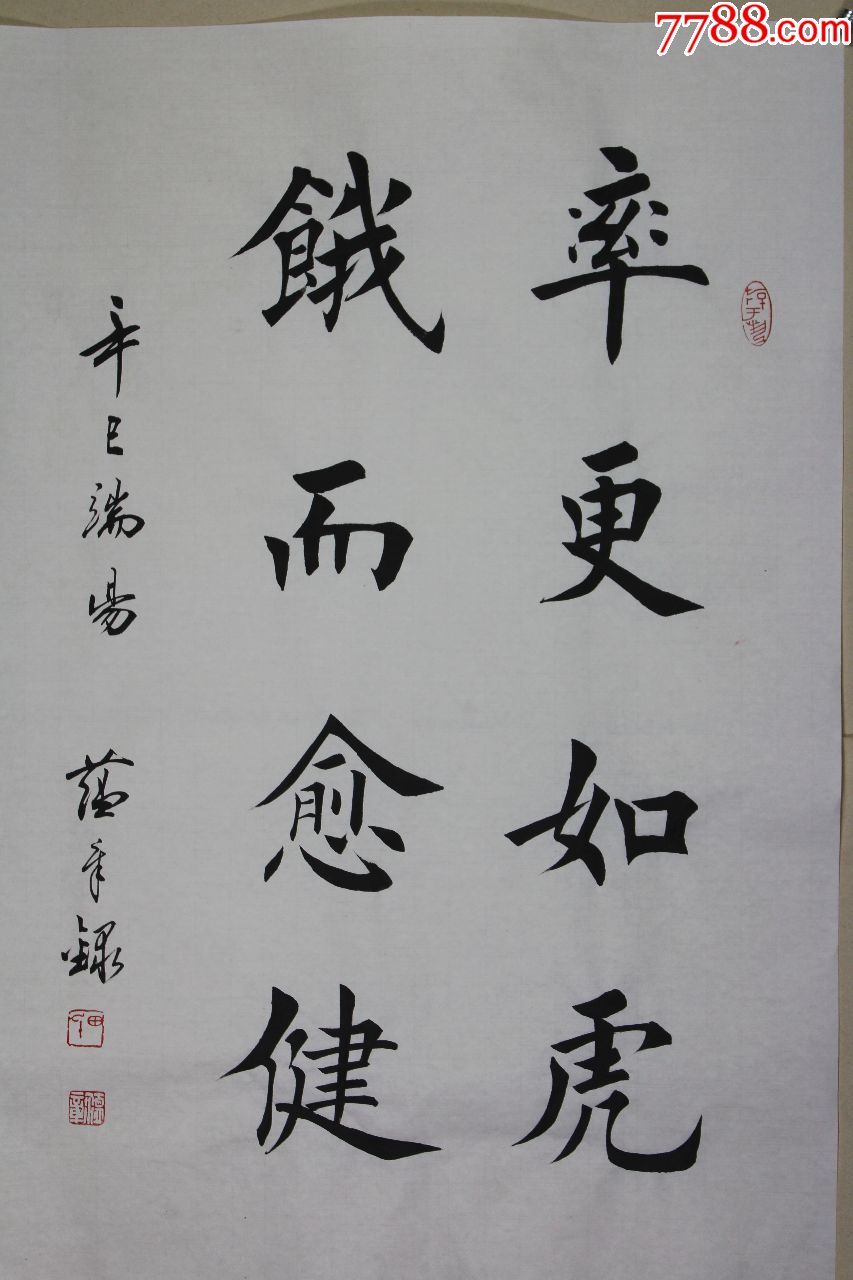 7788.com
率更如虎
餓而愈健
辛巳端陽
錄